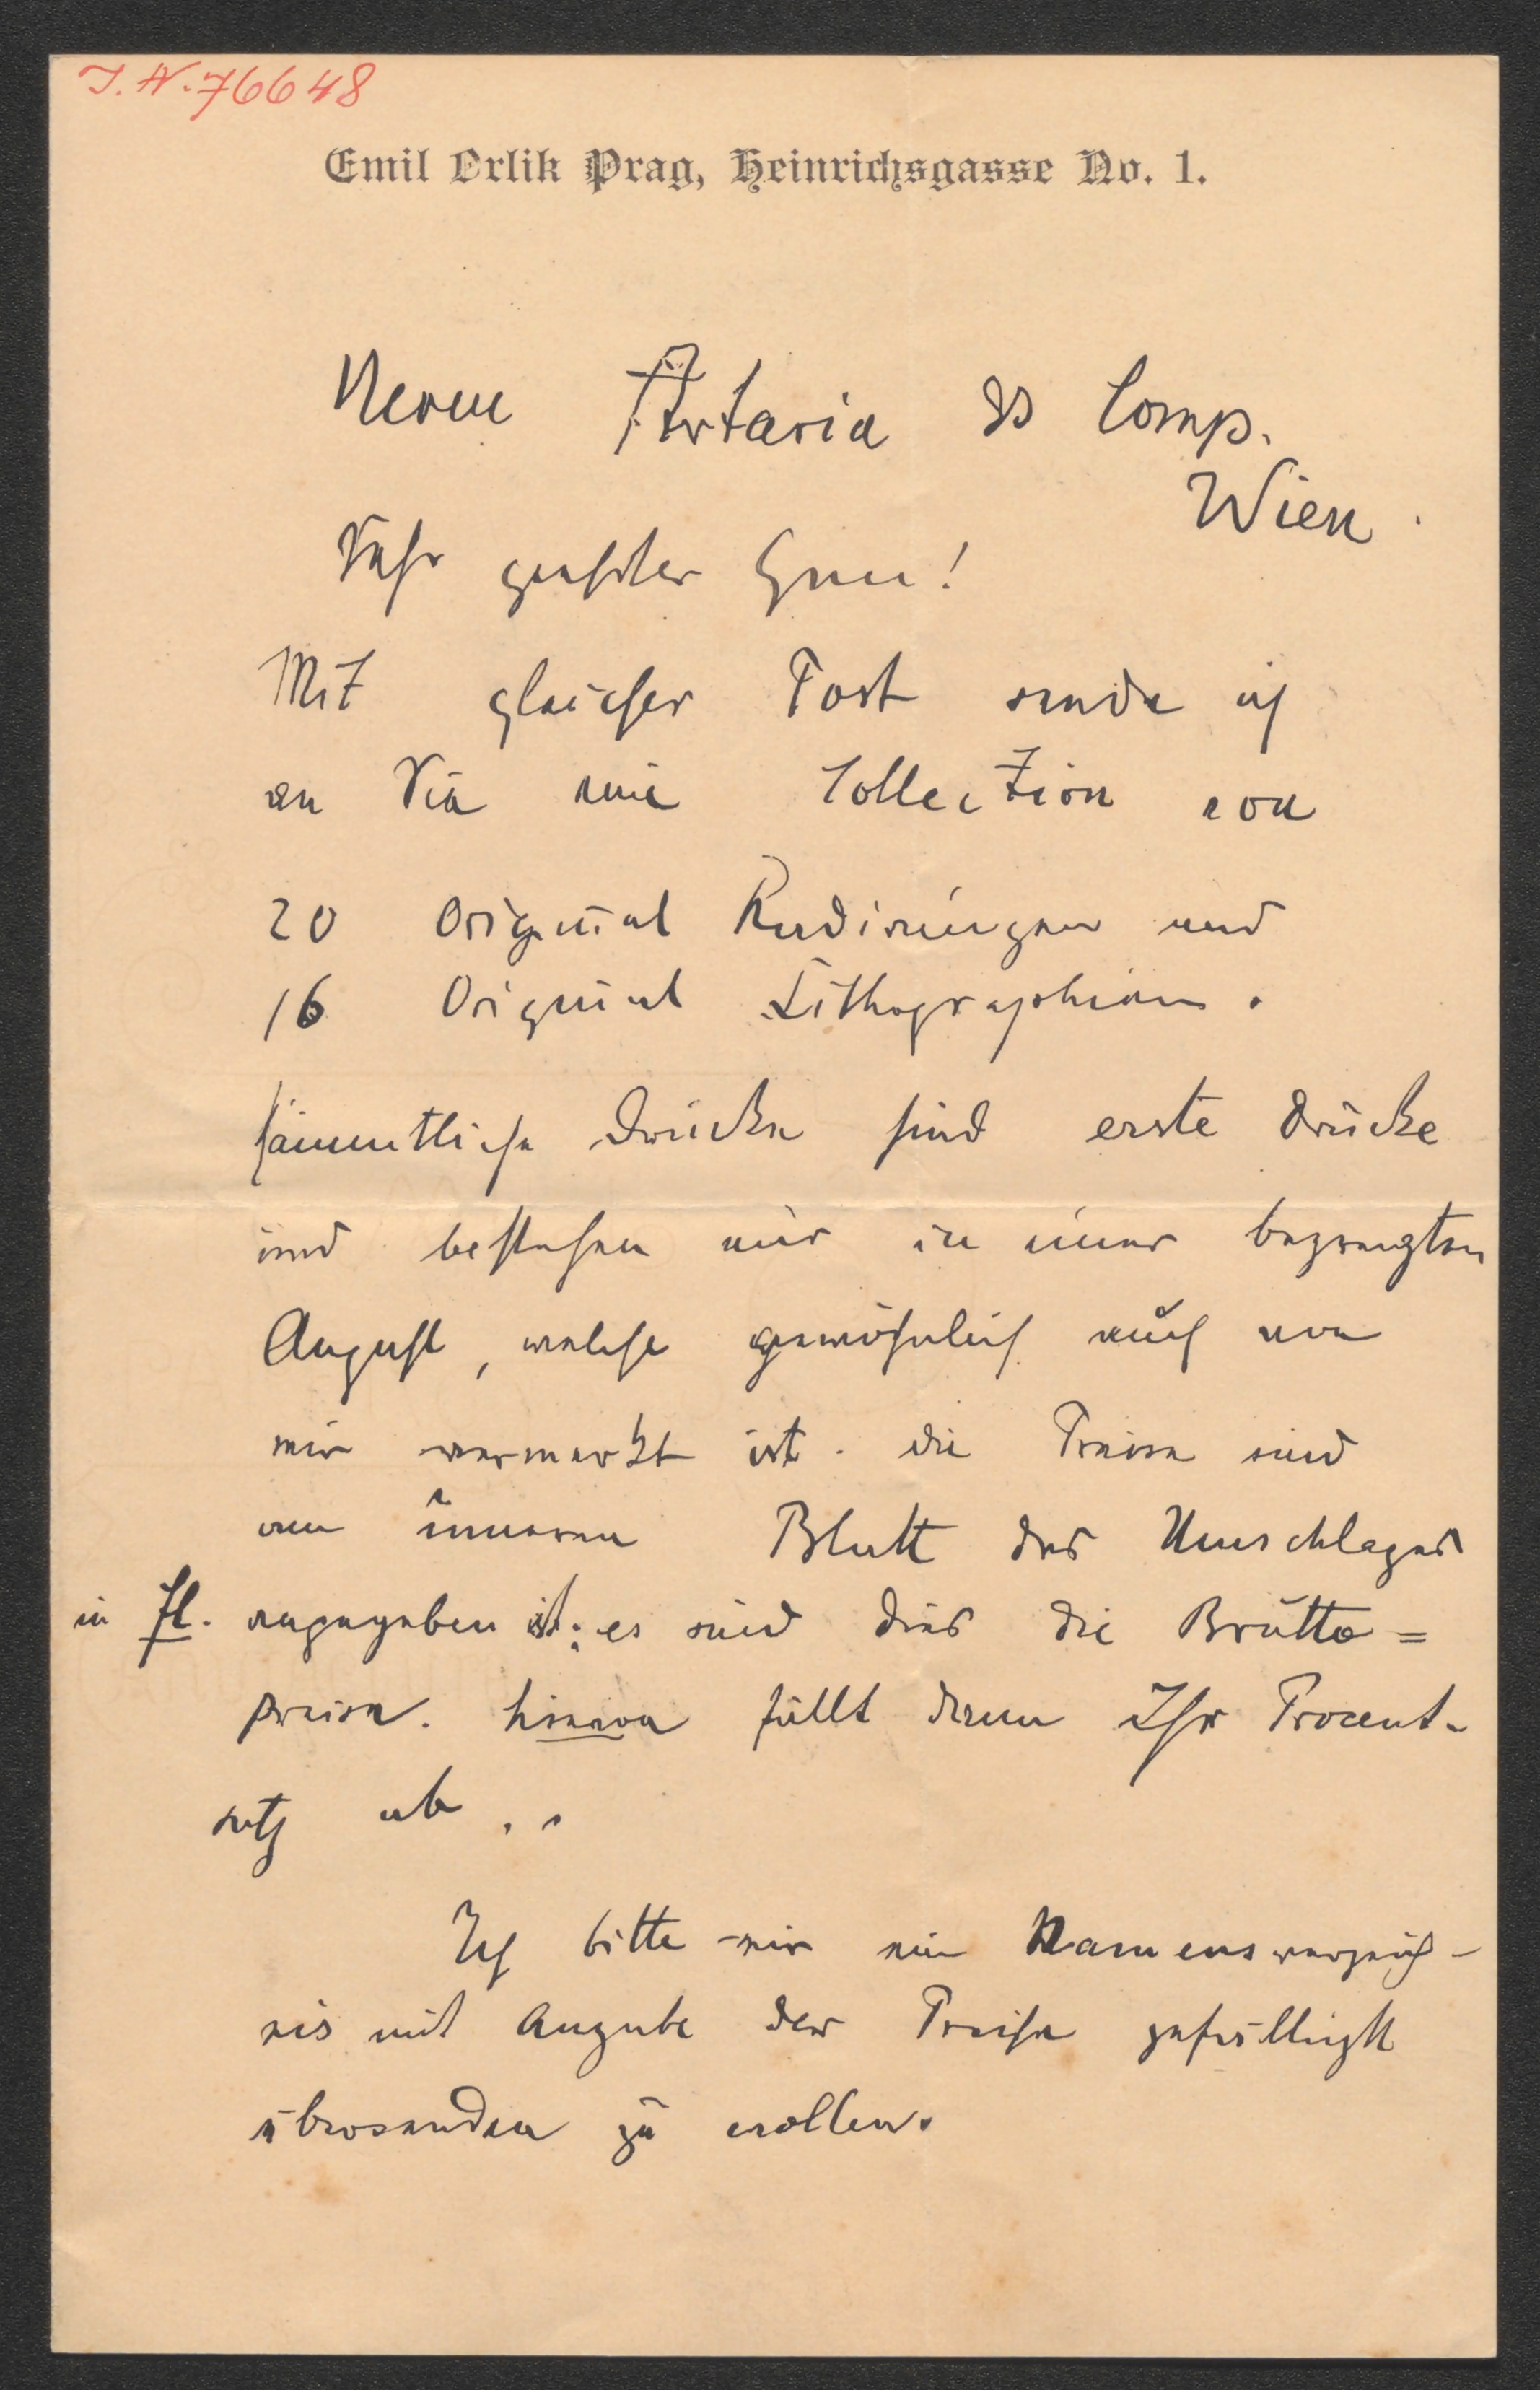 I. N. 76648
Emil Orlik Prag, Heinrichsgasse No. 1.
Herrn Artaria & Comp.
Wien.
Sehr geehrter Herr!
Mit gleicher Post sende ich
an Sie eine Collection von
20 Original Radirungen und
16 Original Lithographien.
sämmtliche Drucke sind erste Drucke
und bestehen nur in einer begrenzten
Anzahl, welche gewöhnlich auch von
mir vermerkt ist. Die Preise sind
am inneren Blatt des Umschlages
in fl. angegeben ist; es sind dies die Brutto=
preise. hievon fällt dann Ihr Procent-
satz ab..
Ich bitte mir ein Namensverzeich-
nis mit Angabe der Preise gefälligst
übersenden zu wollen.